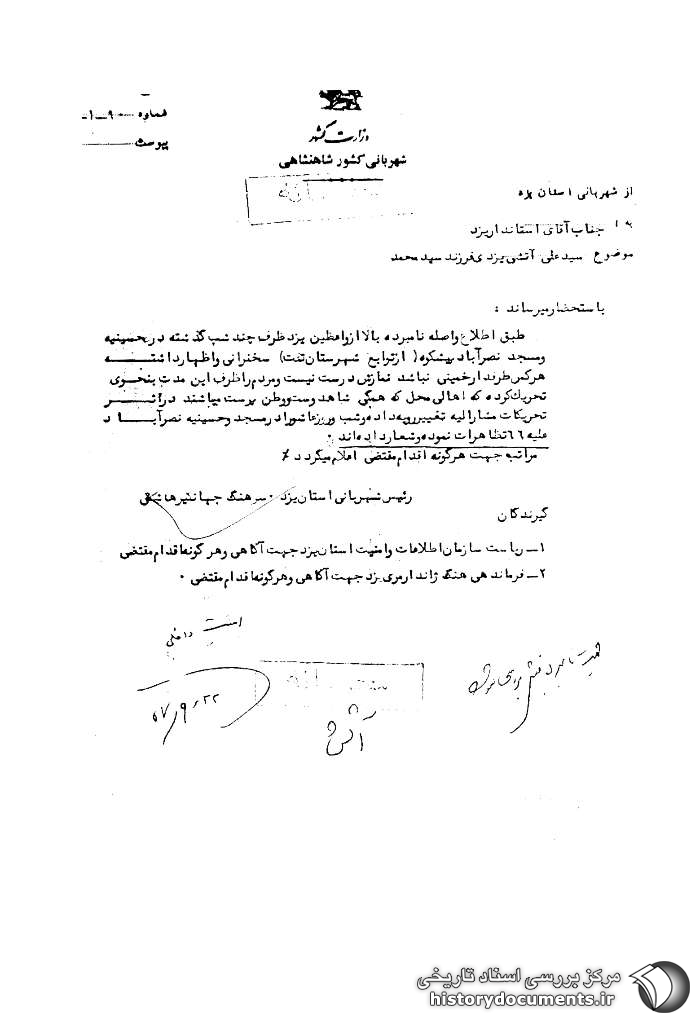 شماره ۹۰-۱-
پیوست
وزارت کشور
شهربانی کشور شاهنشاهی
محرمانه
از شهربانی استان یزد
به جناب آقای استاندار یزد
موضوع سیدعلی آتشی یزدی فرزند سید محمد
باستحضار میرساند :
طبق اطلاع واصله نامبرده بالا از واعظین یزد ظرف چند شب گذشته در حسینیه
و مسجد نصرآباد پیشکوه ( از توابع شهرستان تفت) سخنرانی و اظهار داشته
هرکس طرفدار خمینی نباشد نمازش درست نیست و مردم را ظرف این مدت بنحوی
تحریک کرده که اهالی محل که همگی شاهدوست و وطن پرست میباشند در اثر
تحریکات مشارالیه تغییر رویه داده و شب و روز عاشورا در مسجد و حسینیه نصرآباد
علیه ۶۶ تظاهرات نموده و شعار داده‌اند .
مراتب جهت هرگونه اقدام مقتضی اعلام میگردد
رئیس شهربانی استان یزد . سرهنگ
گیرندگان
۱ــ ریاست سازمان اطلاعات و امنیت استان یزد جهت آگاهی و هرگونه اقدام مقتضی
۲ــ فرماندهی هنگ ژاندارمری یزد جهت آگاهی و هرگونه اقدام مقتضی .
امنیت داخلی
۵۷/۹/۲۲
آتشی
مرکز بررسی اسناد تاریخی
historydocuments.ir